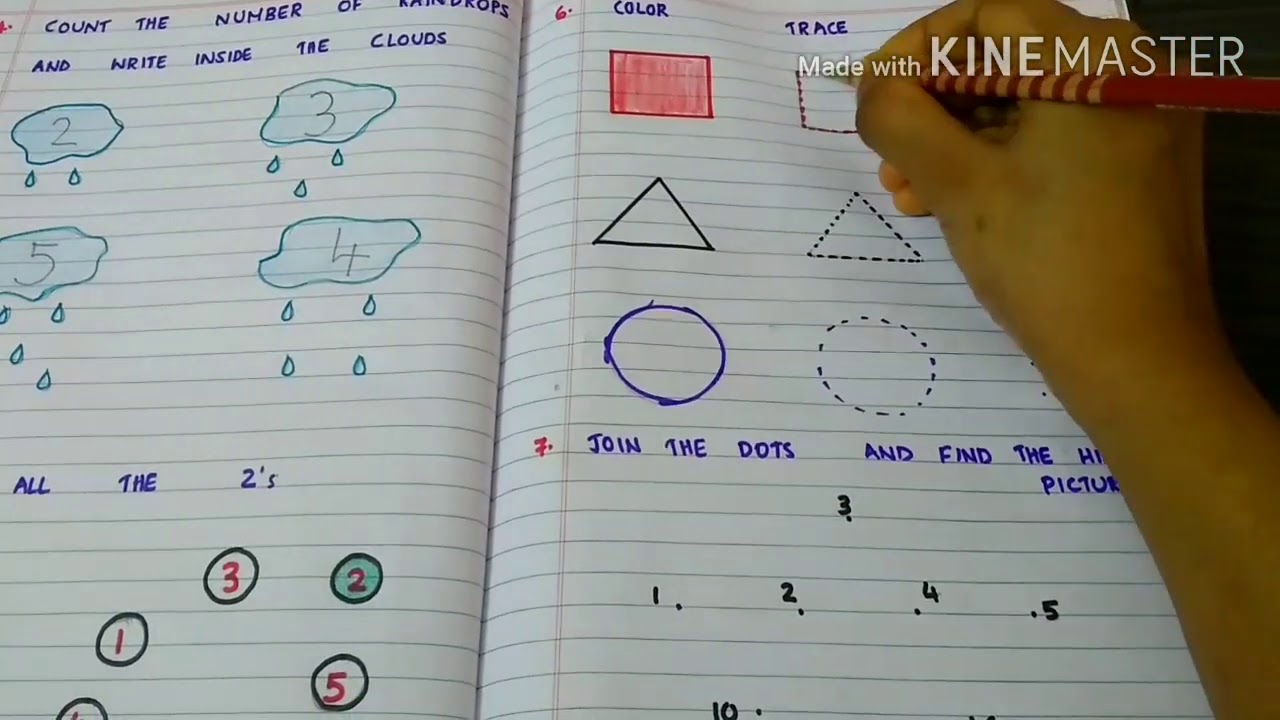 COUNT THE NUMBER OF RAINDROPS
AND WRITE INSIDE THE CLOUDS
2
3
5
4
ALL THE 2's
3
2
1
5
6. COLOR
TRACE
Made with KINEMASTER
7. JOIN THE DOTS AND FIND THE
3
1
2
4
5
10